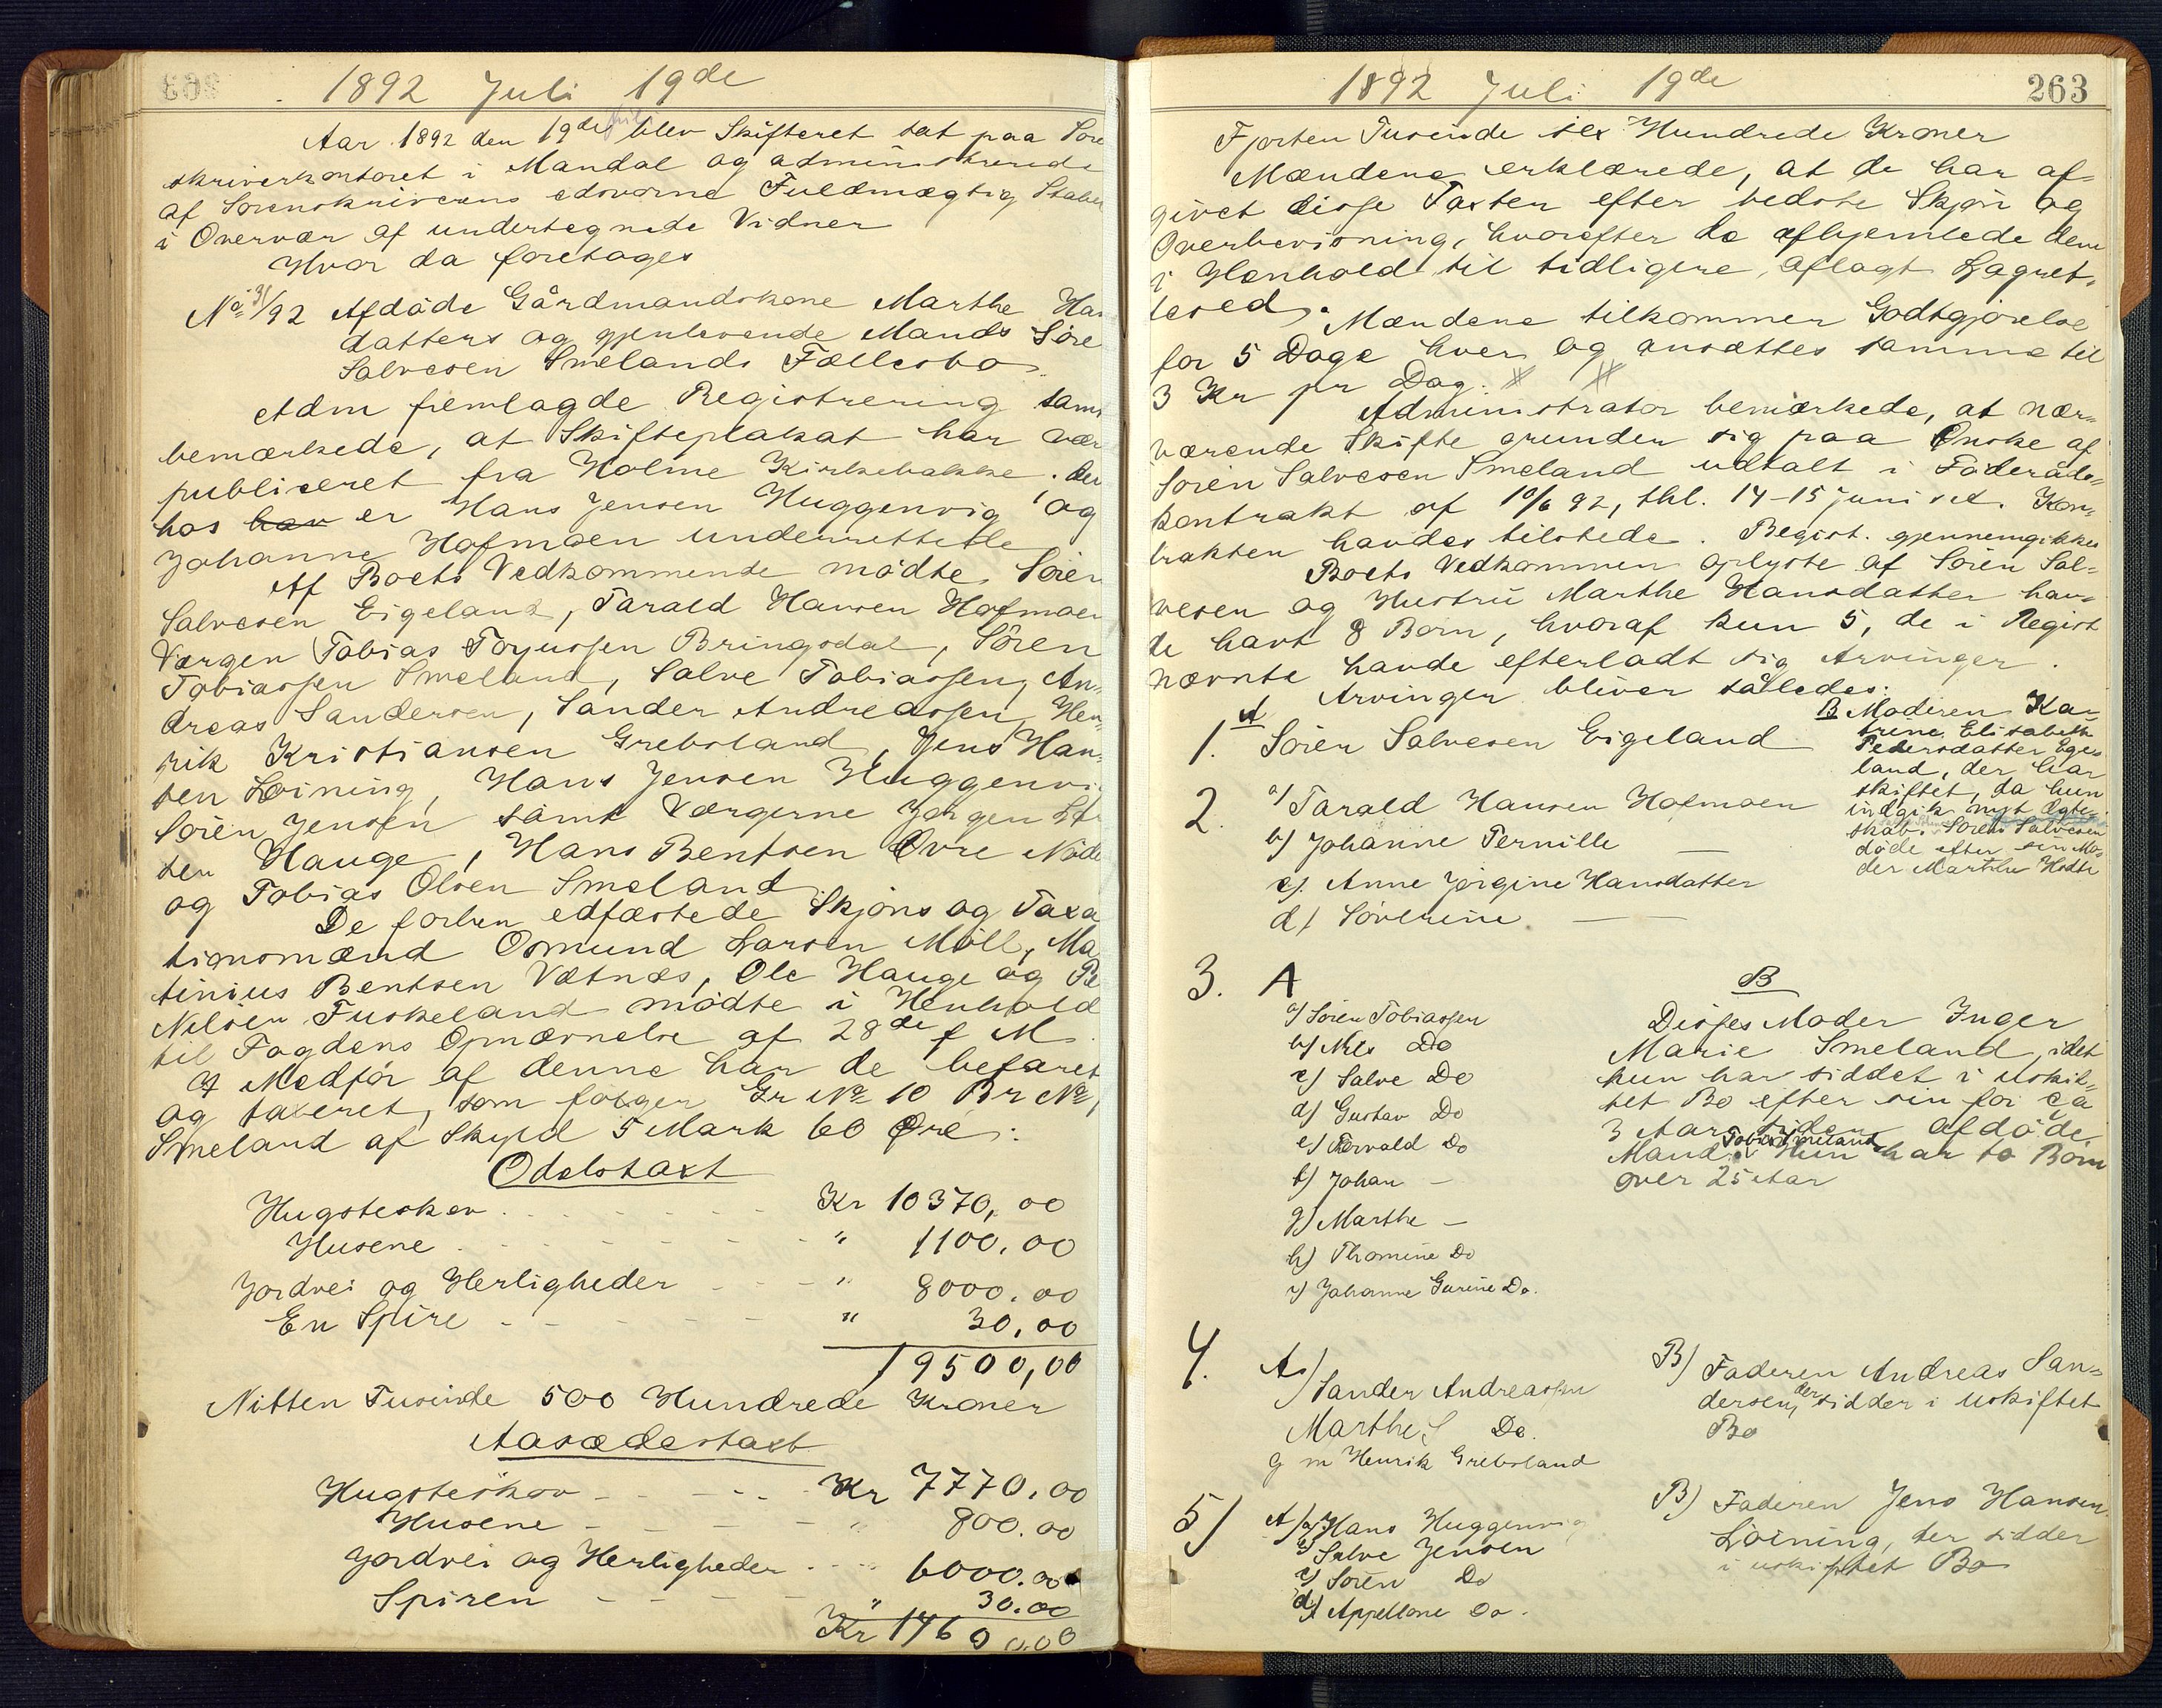 1892 Juli 19de
Aar 1892 den 19de Juli blev Skifteret sat paa Sore
skriverkontoret i Mandal og administrerede
af Sorenskriverens edsvorne Fuldmægtig
i Overvær af undertegnede Vidner
Hvor da foretages
No 31/92 Afdöde Gårdmandskone Marthe Han
datters og gjenlevende Mands Söre
Salvesen Smelands Fællesbo.
Adm fremlagde Registrering samt
bemærkede, at Skifteplakat har vær
publiceret fra Holme Kirkebakke. der
hos hav er Hans Jensen Huggenvig og
Johanne Hofmoen underrettede
Af Boets Vedkommende mödte Sören
Salvesen Eigeland, Tarald Hansen Hofmoen
Værgen Tobias Torjussen Bringsdal, Sören
Tobiassen Smeland, Salve Tobiassen, An-
dreas Sandersen, Sander Andreassen, Hen-
rik Kristiansen Grebsland, Jens Han-
sen Löining, Hans Jensen Huggenvi
Sören Jensen samt Værgerne Jörgen
ten Hauge, Hans Bentsen Øvre Nöde
og Tobias Olsen Smeland
De forhen edfæstede Skjöns og Taxa
tionsmænd Osmund Larsen Möll, Ma
tinius Bentsen Vætnæs, Ole Hauge og Pe
Nilsen Fuskeland mödte i Henhold
til Fogdens Opnævnelse af 28de f M.
I Medför af denne har de befaret
og taxeret, som fölger Gr No 10 Br No 1
Smeland af Skyld 5 Mark 60 Øre:
Odelstaxt
Hugsteskov . . . . . . . Kr 10370,00
Husene . . . . . . . " 1100,00
Jordvei og Herligheder - - - " 8000,00
En Spire - - - - - - " 30,00
19500,00
Nitten Tusinde 500 Hundrede Kroner
Aasædestaxt
Hugsteskov - - - - - Kr 7770,00
Husene - - - - - " 800.00
Jordvei og Herligheder . . . " 6000.00
Spiren - - - - - " 30.00
Kr 14600.00
1892 Juli 19de 263
Fjorten Tusinde sex Hundrede Kroner
Mændene erklærede, at de har af-
givet disse Taxter efter bedste Skjön og
Overbevisning, hvorefter de afhjemlede dem
i Henhold til tidligere aflagt Lagret-
tesed.
Mændene tilkommer Godtgjörelse
for 5 Dage hver og ansættes samme til
3 Kr pr Dag.
Administrator bemærkede, at nær-
værende Skifte grunder sig paa Önske af
Sören Salvesen Smeland udtalt i Föderåds-
kontrakt af 10/6 92, thl. 14-15 Juni s.A. Kon-
trakten havdes tilstede. Regist. gjennemgikkes
Boets Vedkommen oplyste af Sören Sal-
vesen og Hustru Marthe Hansdatter hav-
de havt 8 Born, hvoraf kun 5, de i Regist
nævnte havde efterladt sig Arvinger.
Arvinger bliver således:
1. A Sören Salvesen Eigeland
B Moderen Ka-
trine Elisabeth
Pedersdatter Eges
land, der har
skiftet, da hun
indgik nyt Ægte-
skab. Sören Salvesen
döde efter sin Mo-
der Marthe Hsdtr
2. a) Tarald Hansen Hofmoen
b) Johanne Pernille —
c). Anne Jörgine Hansdatter
d) Söverine — —
3. A
a) Sören Tobiassen
b) Nils Do
c) Salve Do
d) Gustav Do
e) Torvald Do
f) Johan —
g) Marthe —
h) Thomine Do
i) Johanne Gurine Do.
B
Disses Moder Inger
Marie Smeland, idet
hun har siddet i uskif-
tet Bo efter sin for ca
3 Aar siden afdöde
Mand Tobias Smeland. Hun har to Born
over 25 Aar
4. A.) Sander Andreassen
Marthe S Do.
g m Henrik Grebsland
B) Faderen Andreas San-
dersen, der sidder i uskiftet
Bo
5) A) a) Hans Huggenvig
b) Salve Jensen
c) Sören Do
d) Appellone Do.
B) Faderen Jens Hansen
Löining, der sidder
i uskiftet Bo